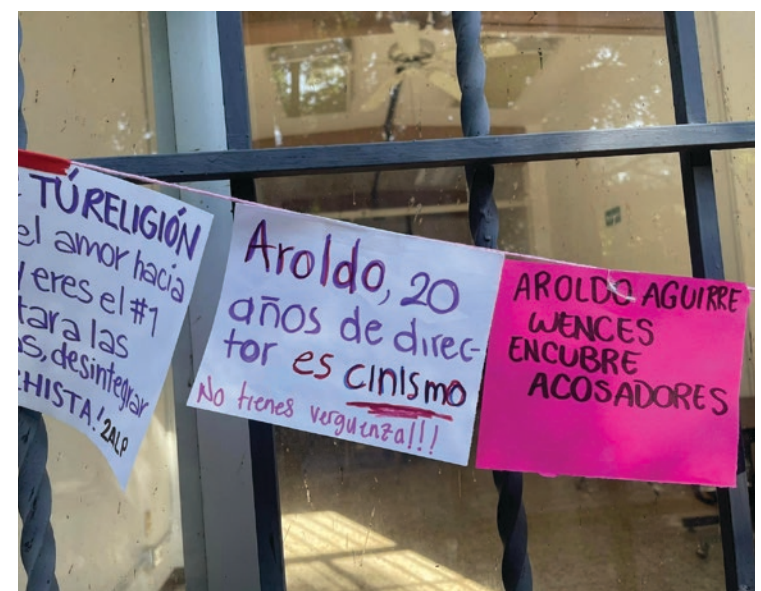 TÚ RELIGIÓN
el amor hacia
eres el #1
tara las
s, desintegrar
HISTA! 2ALP
Aroldo, 20
años de direc-
tor es cinismo
No tienes verguenza!!!
AROLDO AGUIRRE
WENCES
ENCUBRE
ACOSADORES